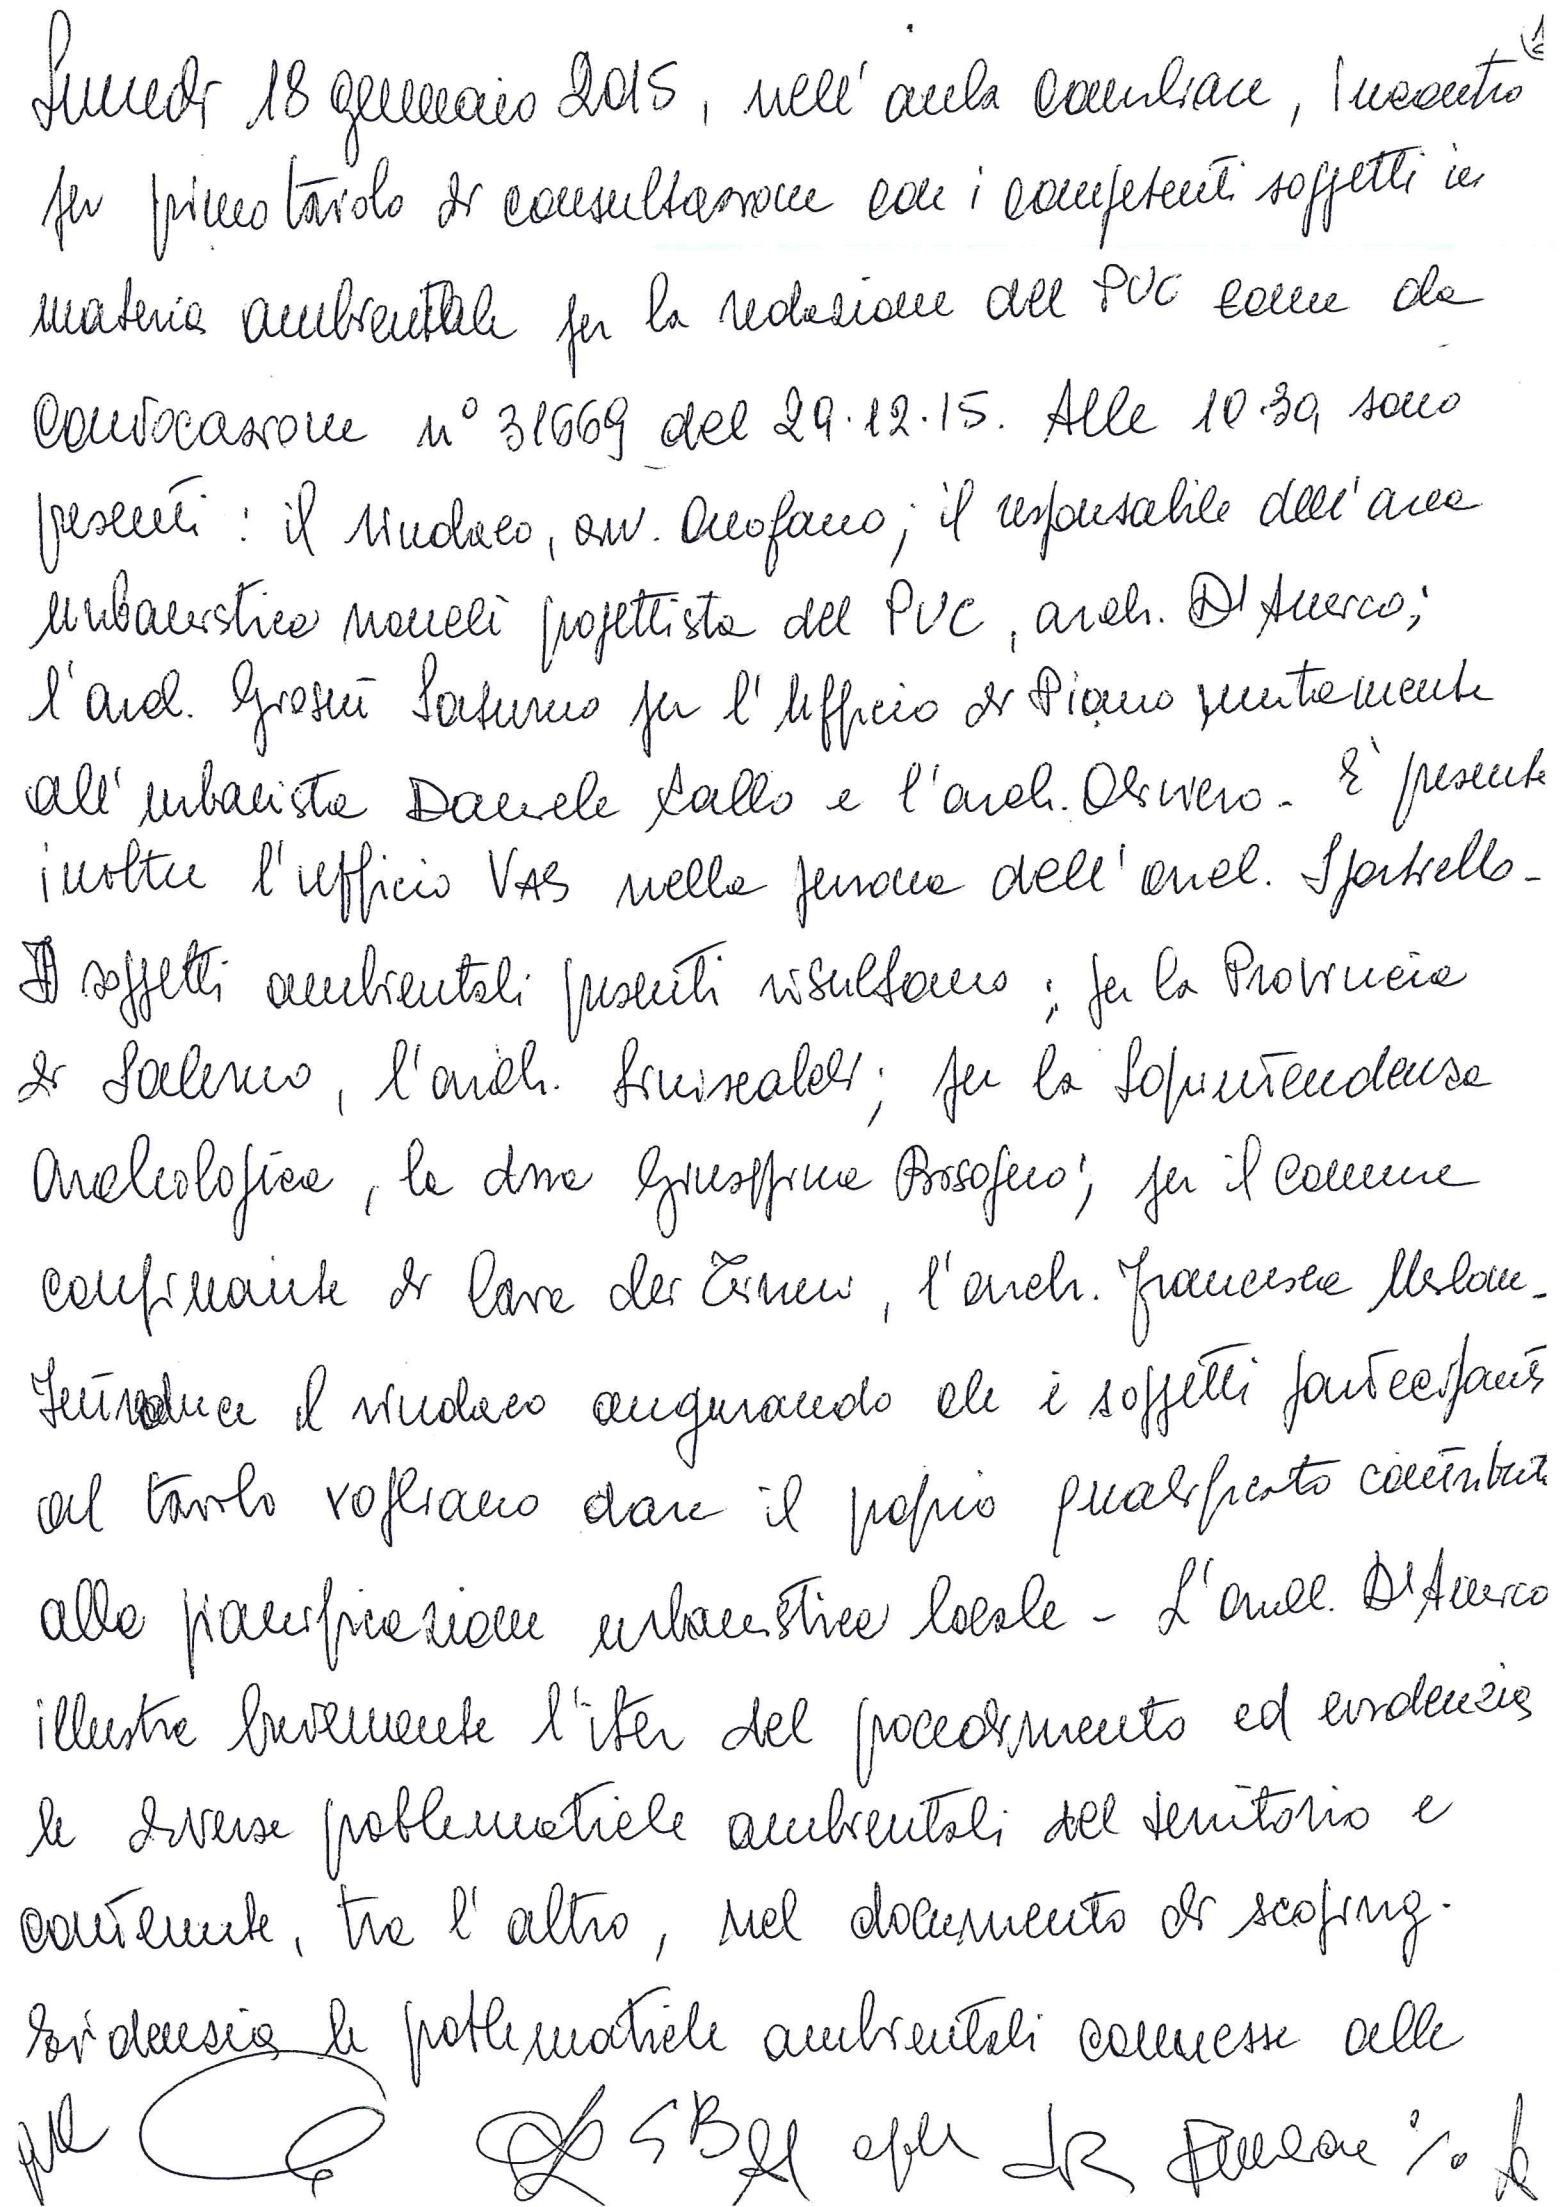 1
Lunedì 18 gennaio 2015, nell'aula consiliare, incontro
per primo tavolo di consultazione con i competenti soggetti in
materia ambientale per la redazione del PUC come da
Convocazione n° 31669 del 29.12.15. Alle 10.30, sono
presenti: il sindaco, avv. Amofano; il responsabile dell'area
urbanistica nonché progettista del PUC, arch. D'Amico;
l'arch. Saturno per l'Ufficio di Piano puntamente
all'urbanista Daniele Gallo e l'arch. Oliviero - È presente
inoltre l'ufficio VAS nella persona dell'arch. Spatriello -
I soggetti ambientali presenti risultano: per la Provincia
di Salerno, l'arch. Siniscaldi; per la Soprintendenza
Archeologica, la dr.ssa Giuseppina Bisogno; per il Comune
confinante di Cava dei Tirreni, l'arch. Francesca Merlone -
Introduce il sindaco augurando che i soggetti partecipanti
al tavolo vogliano dare il proprio qualificato contributo
alla pianificazione urbanistica locale - L'arch. D'Amico
illustra brevemente l'iter del procedimento ed evidenzia
le diverse problematiche ambientali del territorio e
contenute, tra l'altro, nel documento di scoping.
Evidenzia le problematiche ambientali connesse alle
SB